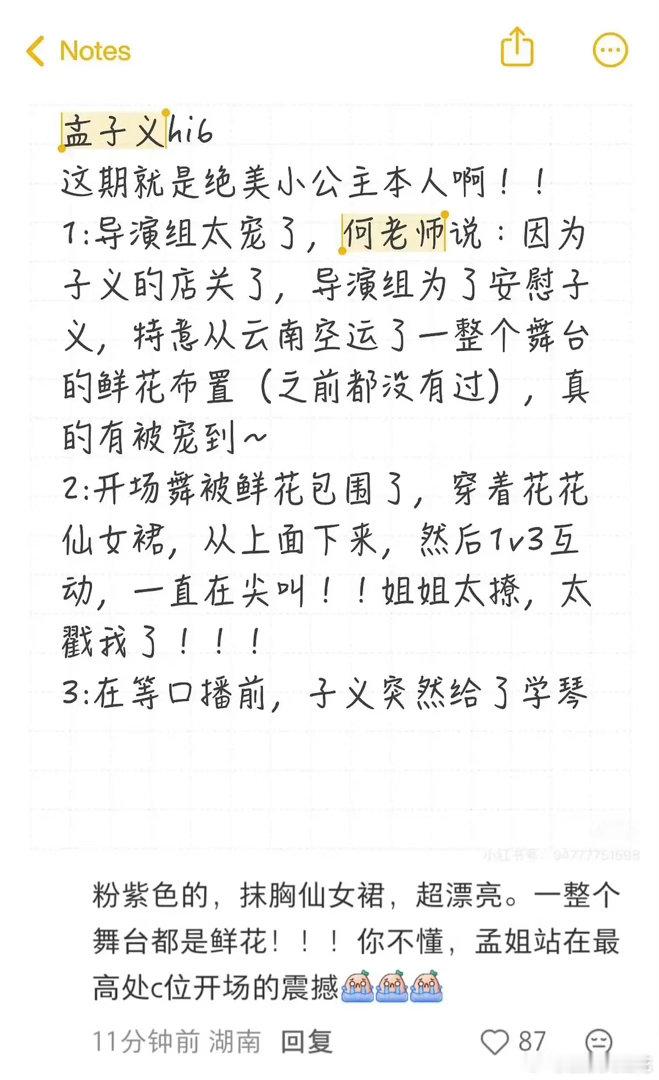 Notes
孟子义hi6
这期就是绝美小公主本人啊！！
1:导演组太宠了，何老师说：因为
子义的店关了，导演组为了安慰子
义，特意从云南空运了一整个舞台
的鲜花布置（之前都没有过），真
的有被宠到~
2:开场舞被鲜花包围了，穿着花花
仙女裙，从上面下来，然后1v3互
动，一直在尖叫！！姐姐太撩，太
戳我了！！！
3:在等口播前，子义突然给了学琴
小红书号：94777751598
粉紫色的，抹胸仙女裙，超漂亮。一整个
舞台都是鲜花！！！你不懂，孟姐站在最
高处c位开场的震撼
11分钟前 湖南 回复 87